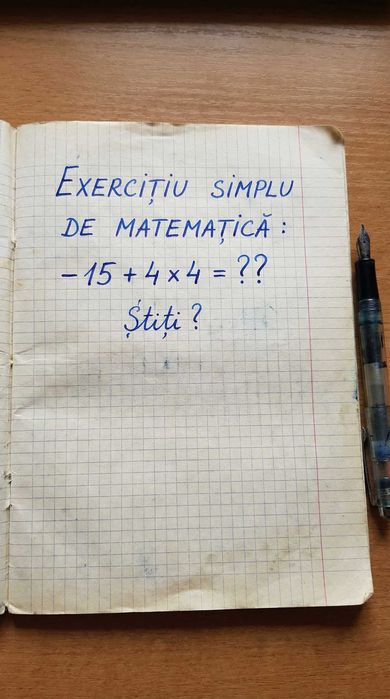 EXERCIȚIU SIMPLU
DE MATEMAȚICĂ:
-15 + 4 × 4 = ??
Știți?